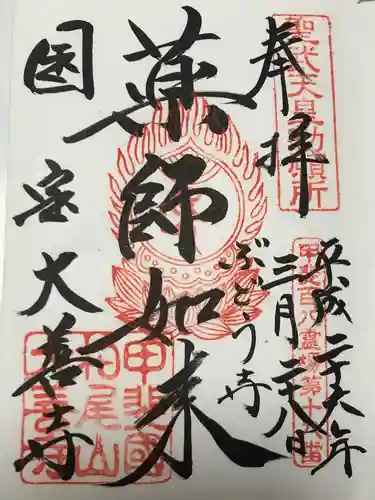 奉拝
聖武天皇勅願所
平成二十六年
三月二十八日
甲斐百八霊場第十八番
薬師如来
ぶどう寺
国宝大善寺
甲斐國
柏尾山
大善寺